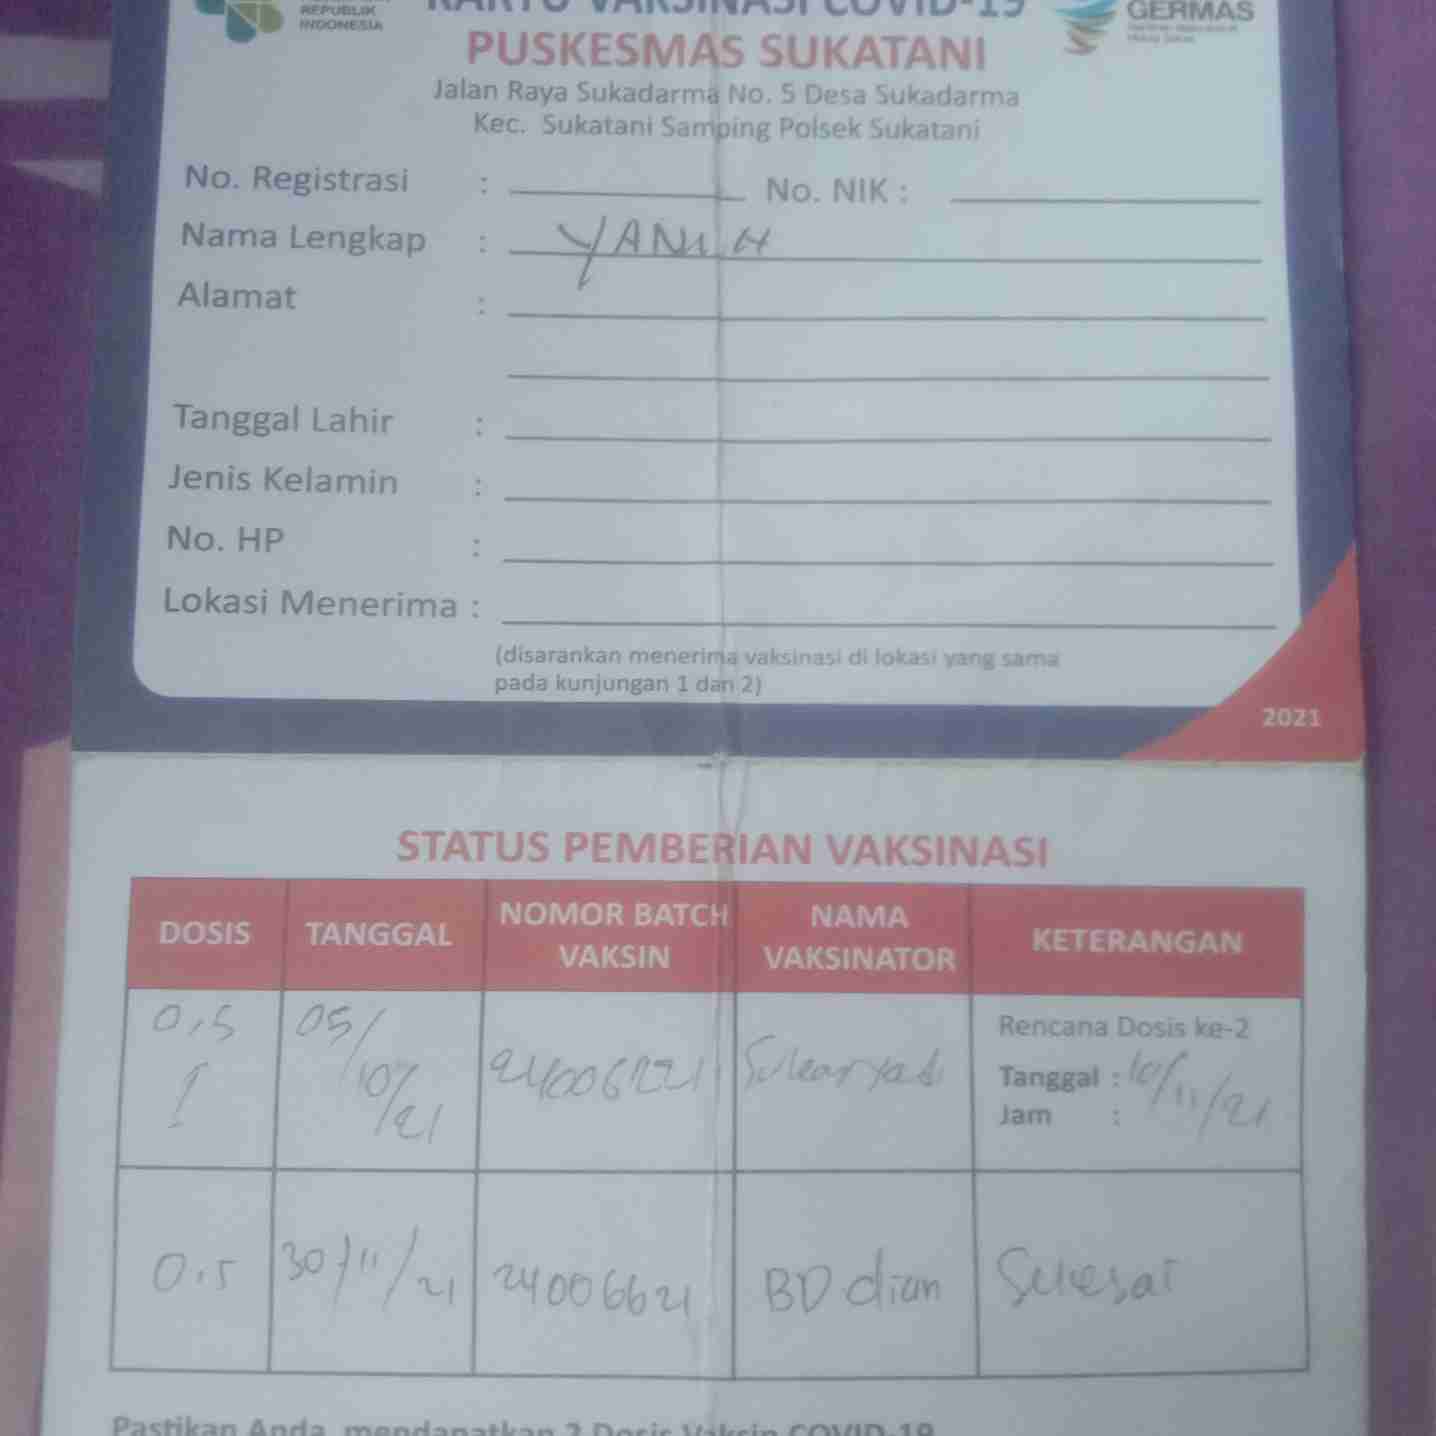 REPUBLIK
INDONESIA
KARTU VAKSINASI COVID-19
GERMAS
PUSKESMAS SUKATANI
Jalan Raya Sukadarma No. 5 Desa Sukadarma
Kec. Sukatani Samping Polsek Sukatani
No. Registrasi : No. NIK :
Nama Lengkap :
Alamat :
Tanggal Lahir :
Jenis Kelamin :
No. HP :
Lokasi Menerima :
(disarankan menerima vaksinasi di lokasi yang sama
pada kunjungan 1 dan 2)
2021
STATUS PEMBERIAN VAKSINASI
DOSIS TANGGAL NOMOR BATCH VAKSIN NAMA VAKSINATOR KETERANGAN
0,5 05/10/21 Rencana Dosis ke-2
Tanggal : 10/11/21
Jam :
0.5 30/11/21 24006621 BD dian Selesai
Pastikan Anda mendapatkan 2 Dosis Vaksin COVID-19